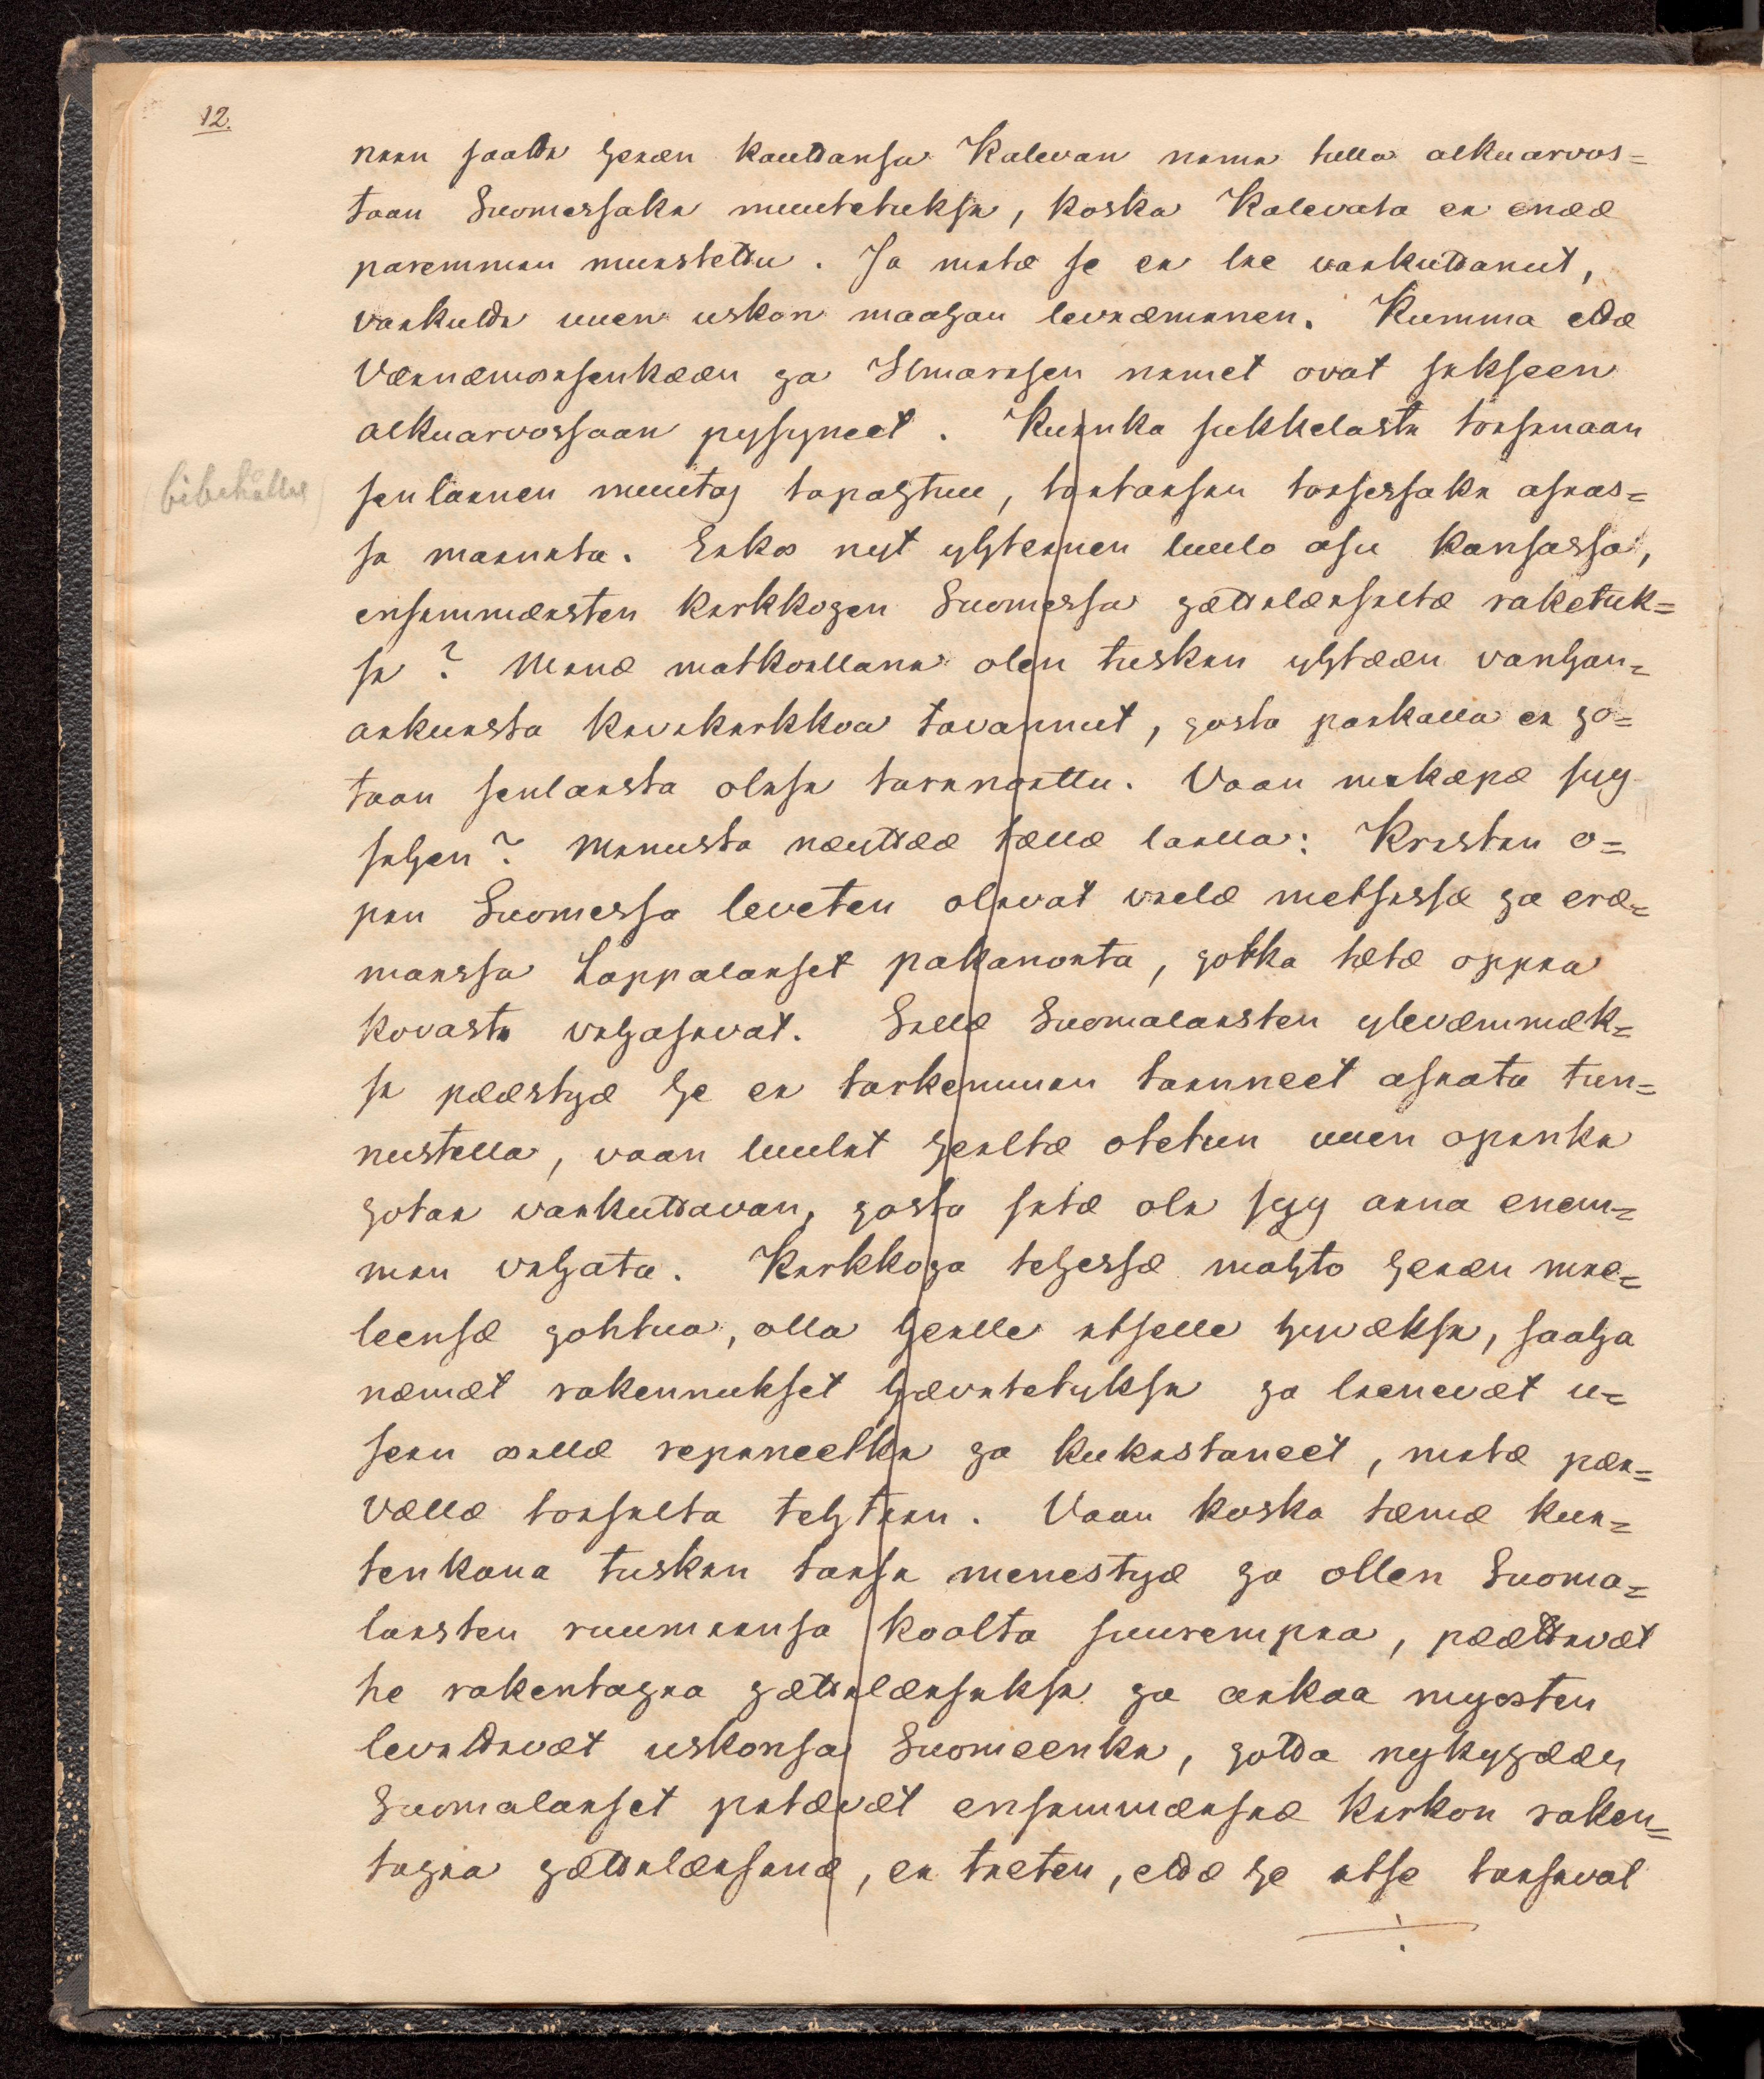 12.
niin saatti heiæn kauttansa Kalevan nimi tulla alkuarvos=
taan Suomessaki muutetuksi, koska Kalevata ei enææ
paremmin muistettu. Ja mitæ se ei lie vaikuttanut,
vaikutti uuen uskon maahan leviæminen. Kumma ettæ
Væinæmöisenkææn ja Ilmarisen nimet ovat sikseen
alkuarvossaan pysyneet. Kuinka sukkelasti toisinaan
bibehållas
senlainen muutos tapahtuu, toitaisin toisessaki asias=
sa mainita. Eikö nyt yhteinen luulo asu kansassa,
ensimmæisten kirkkojen Suomessa jættilæisiltæ raketuk=
si? Minæ matkoillani olen tuskin yhtææn vanhan=
aikuista kivikirkkoa tavannut, josta paikalla ei jo=
taan senlaista olisi tarinoittu. Vaan mikæpæ syy
sihen? Minusta næyttææ tællæ lailla: Kristin o=
pin Suomessa leveten olivat vielæ metsissæ ja eræ=
maissa Lappalaiset pakanoita, jotka tætæ oppia
kovasti vihasivat. Sillæ Suomalaisten ylevæmmæk=
si pææstyæ he ei tarkemmin tainneet asiata tun=
nustella, vaan luulit heiltæ otetun uuen opinki
jotai vaikuttavan, josta sitæ oli syy aina enem=
min vihata. Kirkkoja tehessæ mahto heiæn mie=
leensæ johtua, olla heille itselle hyvæksi, saaha
næmæt rakennukset hævitetyksi ja lienevæt u=
sein öillæ repineetki ja kukistaneet, mitæ pæi=
vællæ toisilta tehtiin. Vaan koska tæmæ kui=
tenkana tuskin taisi menestyæ ja ollen Suoma=
laisten ruumiinsa koolta suurempia, pæættivæt
he rakentajia jættilæisiksi ja aikaa myösten
levittivæt uskonsa Suomeenki, jotta nykyjææn
Suomalaiset pitævæt ensimmæisiæ kirkon raken=
tajia jættilæisinæ, ei tieten, ettæ he itse taisivat